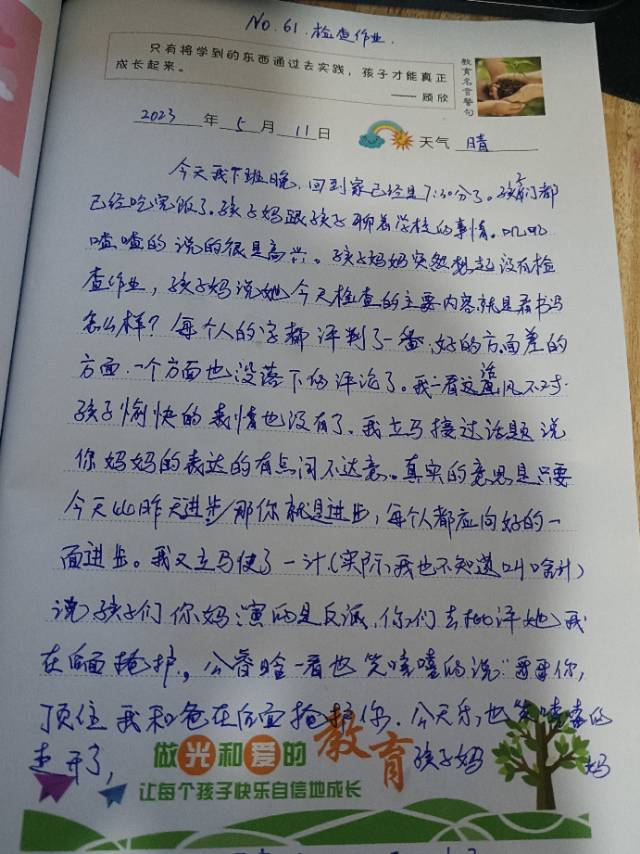 No.61.检查作业.
只有将学到的东西通过去实践，孩子才能真正
成长起来。
——顾欣
教育名言警句
2023年5月11日 天气 晴
今天我下班晚，回到家已经是7:30分了。孩子们都
已经吃完饭了。孩子妈跟孩子聊着学校的事情。叽叽
喳喳的说的很是高兴。孩子妈妈突然想起没有检
查作业，孩子妈说她今天检查的主要内容就是看书写
怎么样？每个人的字都评判了一番，好的方面差的
方面，一个方面也没落下的评论了。我一看这话风不对
孩子愉快的表情也没有了，我立马接过话题说
你妈妈的表达的有点词不达意。真实的意思是只要
今天比昨天进步，那你就是进步，每个人都应向好的一
面进步。我又立马使了一计（实际我也不知道叫啥计）
说孩子们你妈演的是反派，你们去批评她，我
在后面掩护。公睿晗一看也笑嘻嘻的说“哥哥你，
顶住我和爸在后面掩护你，公天乐也笑嘻嘻的
走开了，
孩子妈 妈
做光和爱的教育
让每个孩子快乐自信地成长